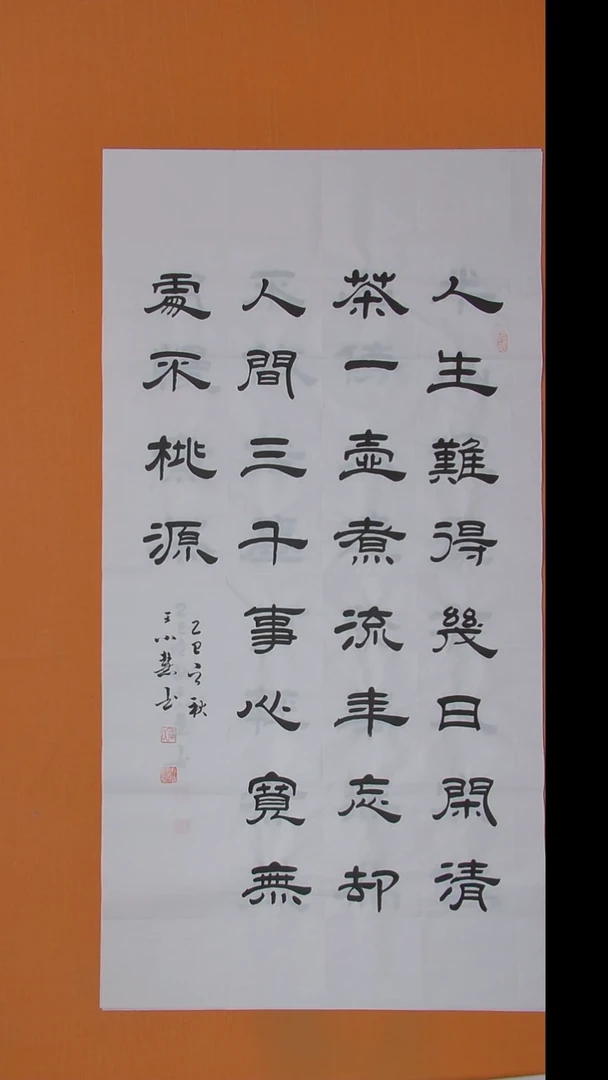 人生難得幾日閑清
茶一壺煮流年忘却
人間三千事心寬無
處不桃源
乙巳之秋
王小书